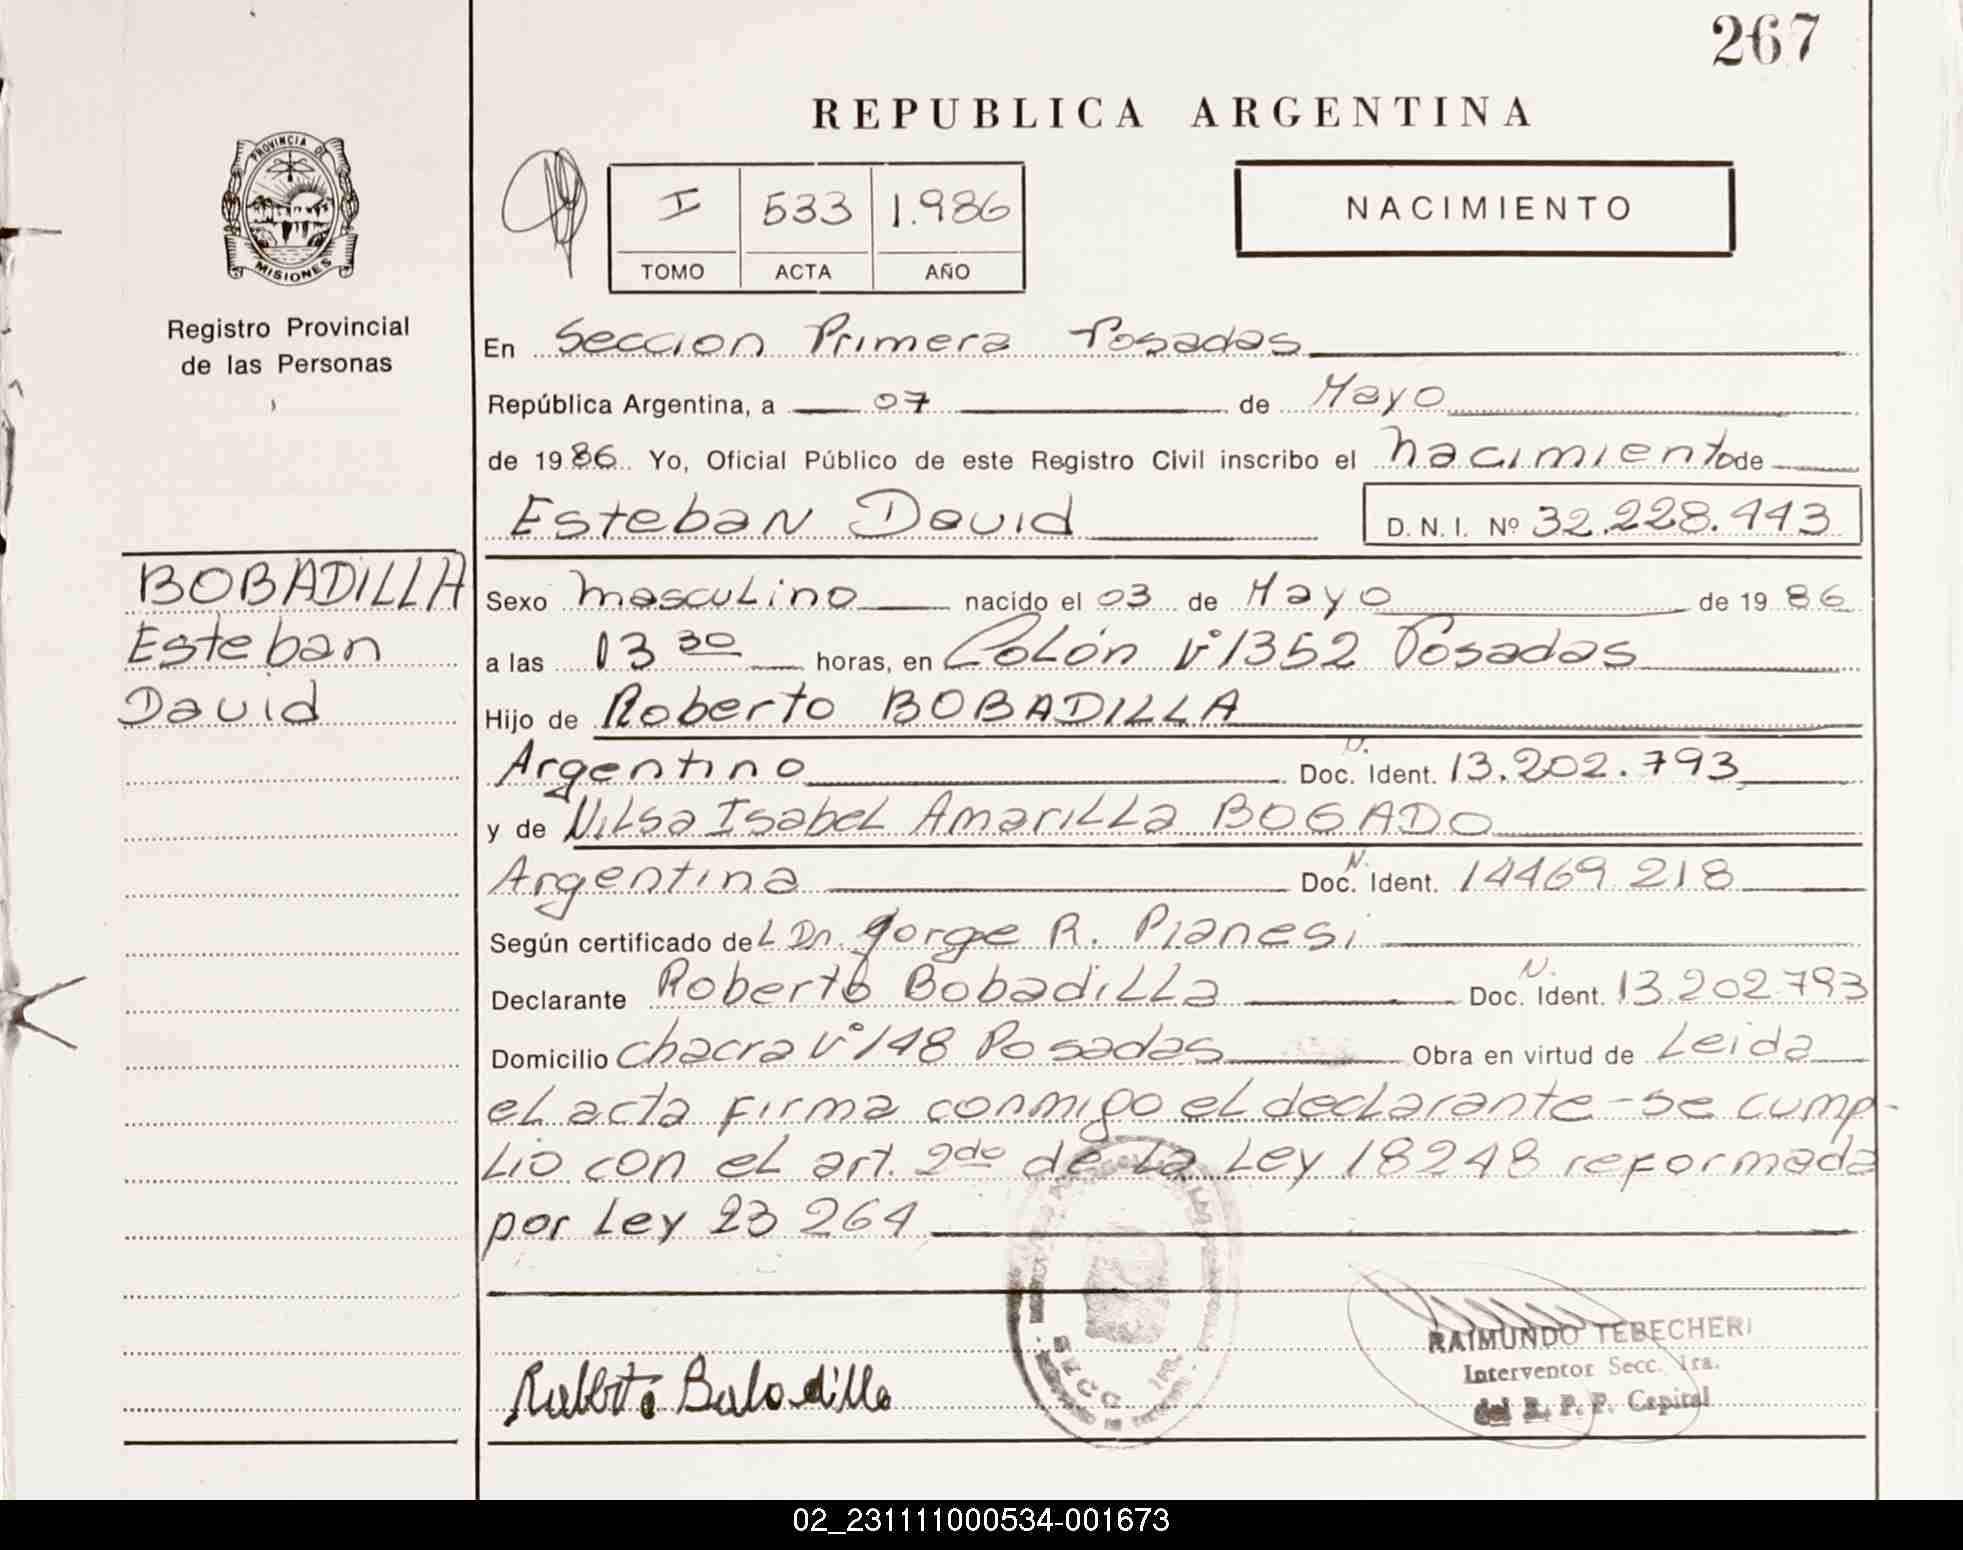 267
REPUBLICA ARGENTINA
PROVINCIA DE
MISIONES
Registro Provincial
de las Personas
I 533 1.986
TOMO ACTA AÑO
NACIMIENTO
En Seccion Primera Posadas
República Argentina, a 07 de Mayo
de 1986. Yo, Oficial Público de este Registro Civil inscribo el nacimiento de
Esteban David D. N. I. Nº 32.228.443
BOBADILLA
Esteban
David
Sexo masculino nacido el 03 de Mayo de 1986
a las 13 30 horas, en Colón Nº 1352 Posadas
Hijo de Roberto BOBADILLA
Argentino Doc. Ident. 13.202.793
y de Nilsa Isabel Amarilla BOGADO
Argentina Doc. N. Ident. 14469 218
Según certificado del Dr. Jorge R. Pianesi
Declarante Roberto Bobadilla Doc. N. Ident. 13.202.793
Domicilio chacra Nº 148 Posadas Obra en virtud de Leida
el acta firma conmigo el declarante - se cump-
lio con el art. 2do de la Ley 18248 reformada
por Ley 23 264
RAIMUNDO TEBECHERI
Interventor Secc. 1ra.
del R. P. P. Capital
SECC 1RA.
02_231111000534-001673